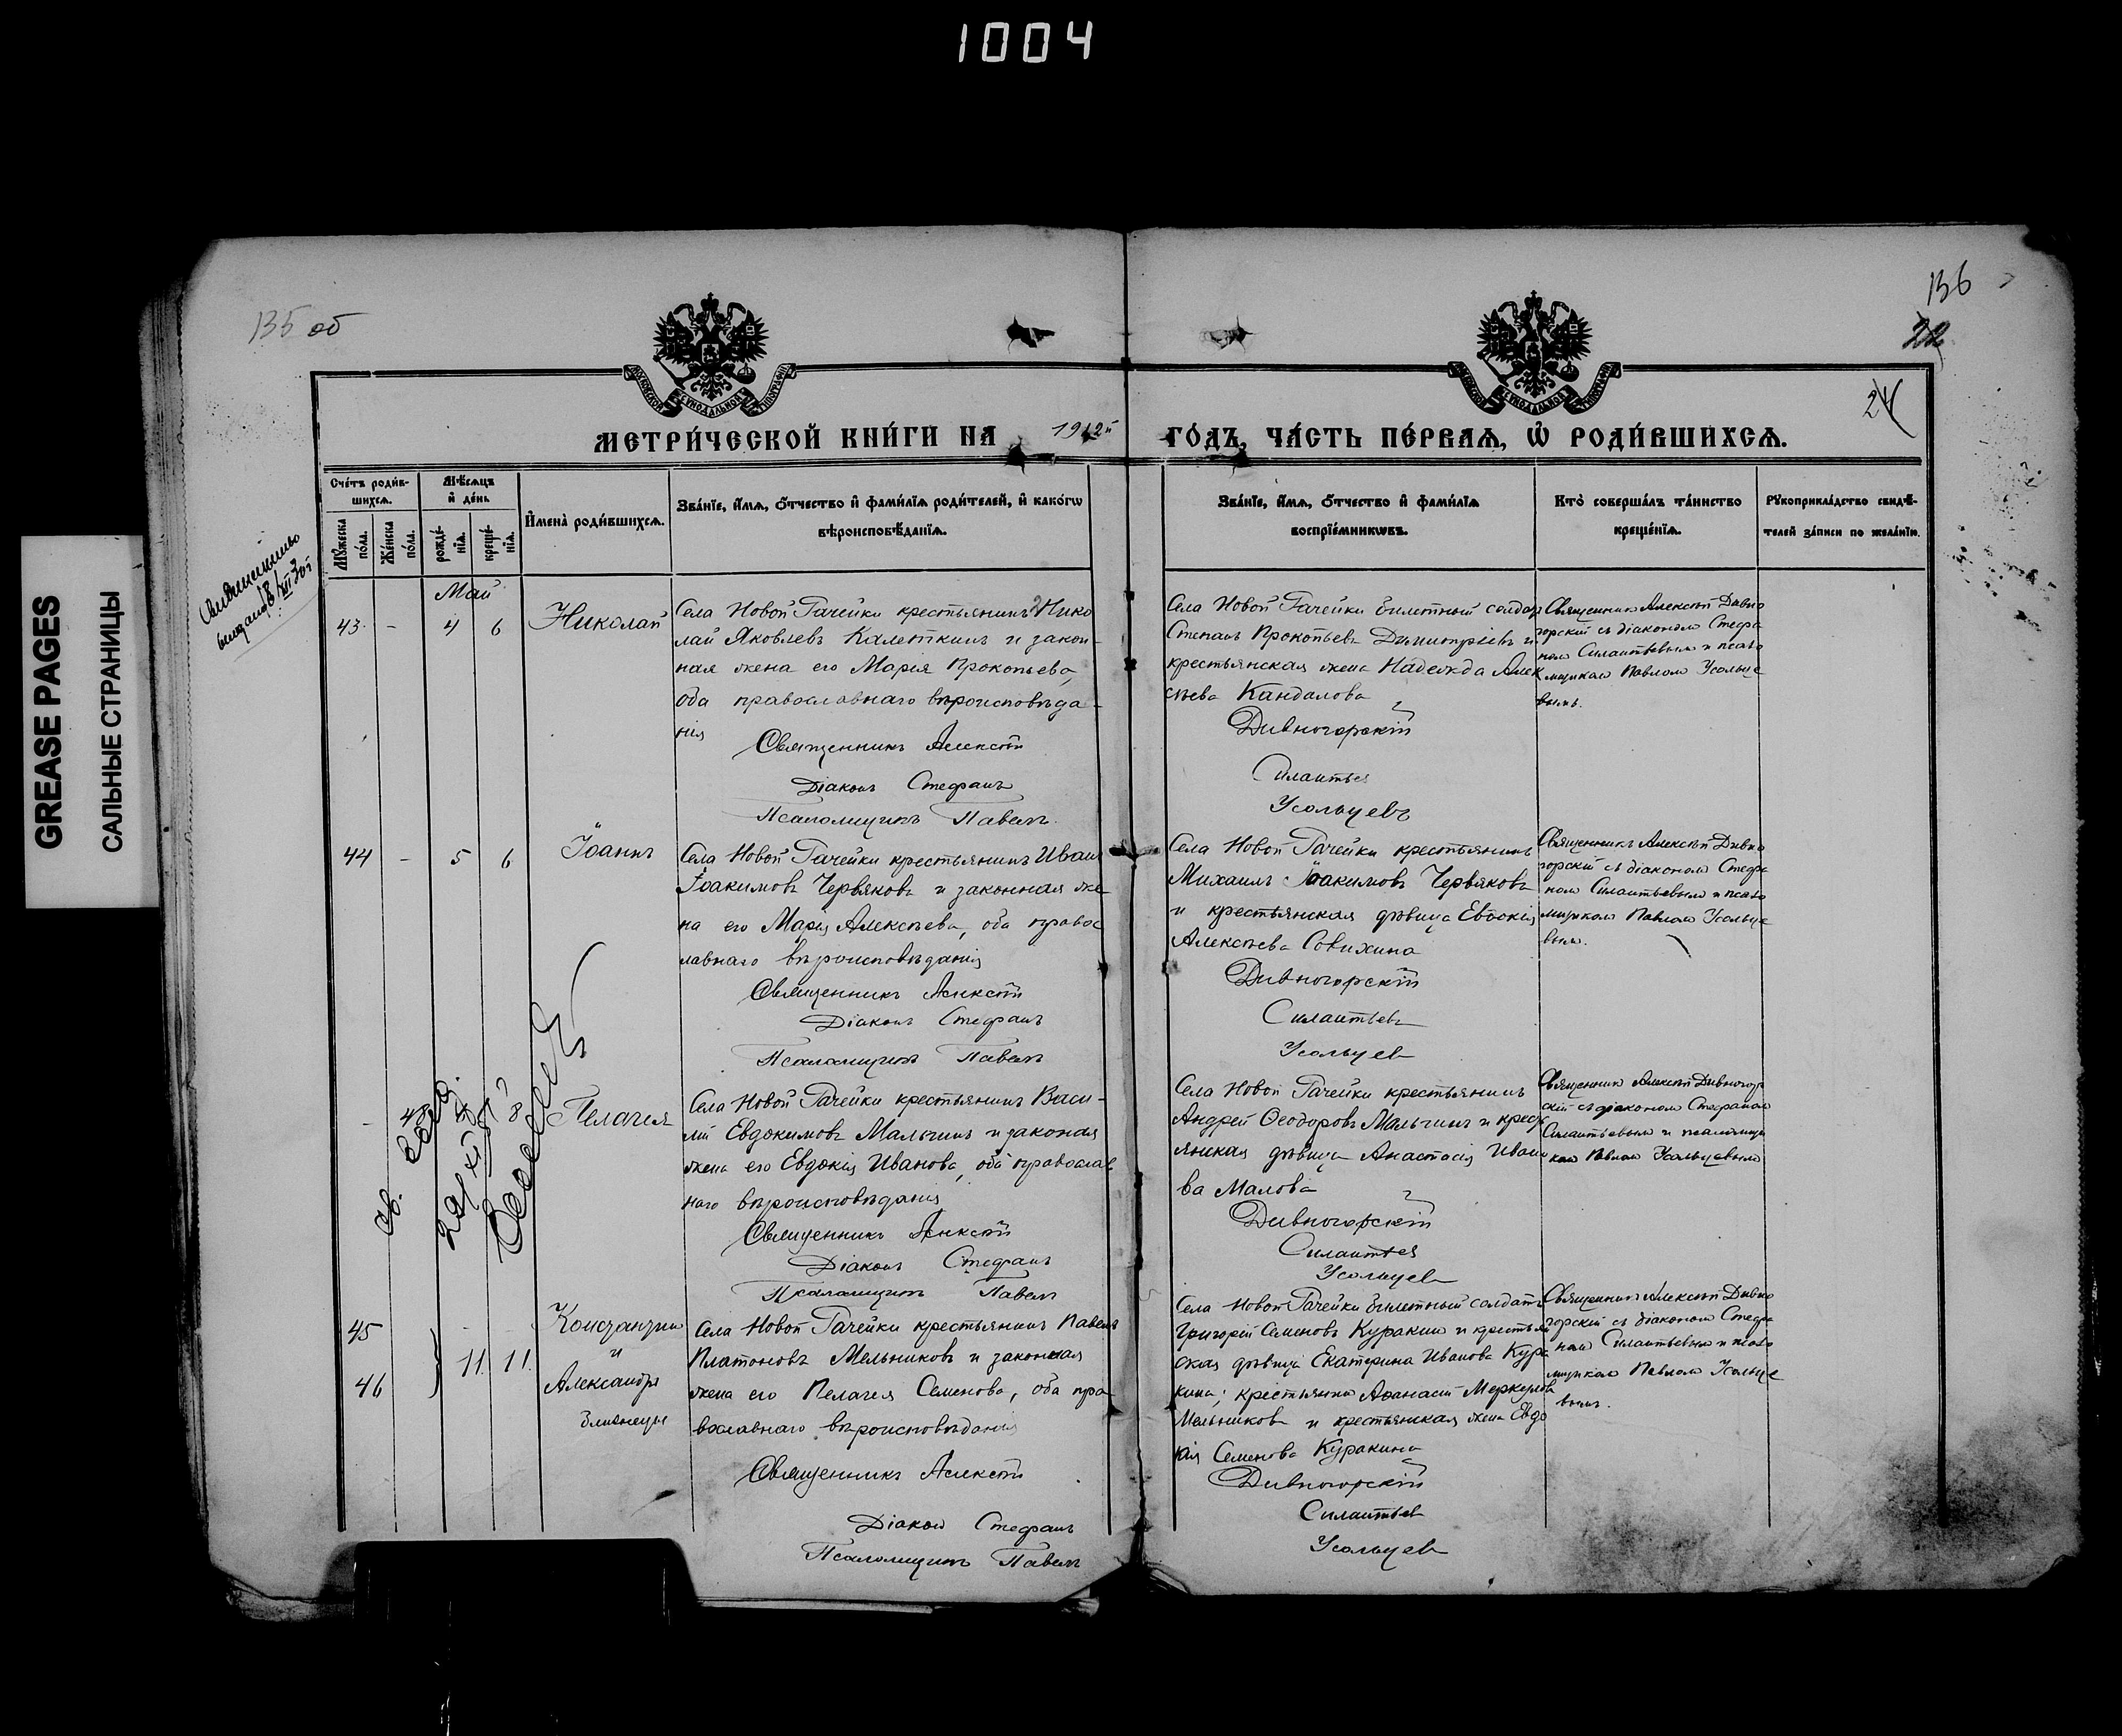 1004
GREASE PAGES
САЛЬНЫЕ СТРАНИЦЫ
135 об
136
22
24
МЕТРИ́ЧЕСКОЙ КНИ́ГИ НА 1912й ГО́ДЪ, ЧА́СТЬ ПЕ́РВАѦ, Ѡ҆ РОДИ́ВШИХСѦ.
Сче́тъ роди́в-
шихсѧ.
Мѣ́сѧцъ
и҆ де́нь
Мꙋ́жеска по́ла.
Же́нска по́ла.
рожде́-
нїѧ.
креще́-
нїѧ.
И҆мена̀ роди́вшихсѧ.
Зва́нїе, и҆́мѧ, ѻ҆́тчество и҆ фами́лїѧ роди́телей, и҆ како́гѡ
вѣроисповѣ́данїѧ.
Зва́нїе, и҆́мѧ, ѻ҆́тчество и҆ фами́лїѧ
воспрїе́мникѡвъ.
Кто̀ соверша́лъ та́инство
креще́нїѧ.
Рꙋкоприкла́дство свидѣ́-
телей за́писи по жела́нїю.
Май
43 - 4 6 Николай
Села Новой Рачейки крестьянинъ Нико
лай Яковлевъ Калеткинъ и закон-
ная жена его Марія Прокопьева,
оба православнаго вѣроисповѣда-
нія
Священникъ Алексѣй
Діаконъ Стефанъ
Псаломщикъ Павелъ
Села Новой Рачейки билетный солдатъ
Степанъ Прокопьевъ Димитріевъ и
крестьянская жена Надежда Алек
сѣева Кандалова
Дивногорскій
Силантьев
Усольцевъ
Священникъ Алексѣй Дивно
горскій съ діакономъ Стефа
номъ Силантьевымъ и псало
мщикомъ Павломъ Усольце
вымъ.
44 - 5 6 Іоаннъ
Села Новой Рачейки крестьянинъ Иванъ
Іоакимовъ Червяковъ и законная же
на его Марія Алексѣева, оба правос
лавнаго вѣроисповѣданія
Священникъ Алексѣй
Діаконъ Стефанъ
Псаломщикъ Павелъ
Села Новой Рачейки крестьянинъ
Михаилъ Іоакимовъ Червяковъ
и крестьянская дѣвица Евдокія
Алексѣева Совихина
Дивногорскій
Силантьевъ
Усольцев
Священникъ Алексѣй Дивно
горскій съ діакономъ Стефа
номъ Силантьевымъ и псало
мщикомъ Павломъ Усольце
вым.
- 8 Пелагея
Села Новой Рачейки крестьянинъ Васи-
лій Евдокимовъ Мальгинъ и законая
жена его Евдокія Иванова, оба православ
наго вѣроисповѣданія
Священникъ Алексѣй
Діаконъ Стефанъ
Псаломщикъ Павелъ
Села Новой Рачейки крестьянинъ
Андрей Ѳеодоровъ Мальгинъ и кресть
янская дѣвица Анастасія Ивано
ва Малова
Дивногорскій
Силантьев
Усольцев
Священник Алексѣй Дивногор
скій съ діакономъ Стефаномъ
Силантьевымъ и псаломщи
комъ Павломъ Усольцевымъ
45
46
11 11.
и
Александръ
близнецы
Села Новой Рачейки крестьянинъ Павелъ
Платоновъ Мельниковъ и законная
жена его Пелагея Семенова, оба пра
вославнаго вѣроисповѣданія
Священникъ Алексѣй
Діакон Стефанъ
Псаломщикъ Павелъ
Села Новой Рачейки билетный солдатъ
Григорій Семеновъ Куракин и крестьян
ская дѣвица Екатерина Иванова Кура
кина; крестьянин Аѳанасій Меркулов
Мельников и крестьянская жена Евдо
кія Семенова Куракина
Дивногорскій
Силантьев
Усольцев
Священникъ Алексѣй Дивно
горскій съ діакономъ Стефа
номъ Силантьевымъ и псало
мщиком Павломъ Усольце
вымъ.